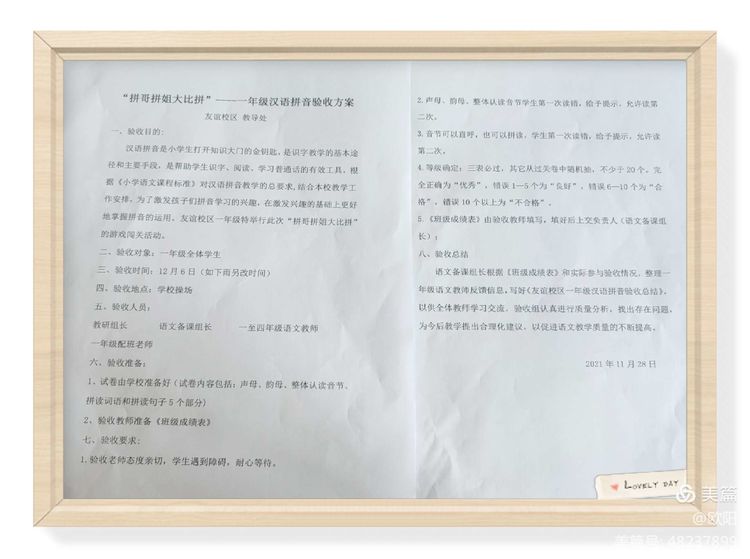 “拼哥拼姐大比拼”——一年级汉语拼音验收方案
友谊校区 教导处
一、验收目的：
汉语拼音是小学生打开知识大门的金钥匙，是识字教学的基本途
径和主要手段，是帮助学生识字、阅读、学习普通话的有效工具。根
据《小学语文课程标准》对汉语拼音教学的总要求，结合本校教学工
作安排，为了激发孩子们拼音学习的兴趣，在激发兴趣的基础上更好
地掌握拼音的运用。友谊校区一年级特举行此次“拼哥拼姐大比拼”
的游戏闯关活动。
二、验收对象：一年级全体学生
三、验收时间：12月6日（如下雨另改时间）
四、验收地点：学校操场
五、验收人员：
教研组长 语文备课组长 一至四年级语文教师
一年级配班老师
六、验收准备：
1、试卷由学校准备好（试卷内容包括：声母、韵母、整体认读音节、
拼读词语和拼读句子5个部分）
2、验收教师准备《班级成绩表》
七、验收要求：
1.验收老师态度亲切，学生遇到障碍，耐心等待。
2.声母、韵母、整体认读音节学生第一次读错，给予提示，允许读第
二次。
3.音节可以直呼，也可以拼读。学生第一次读错，给予提示，允许读
第二次。
4.等级确定：三表必过，其它从过关卷中随机抽，不少于20个。完
全正确为“优秀”，错误1—5个为“良好”，错误6—10个为“合
格”，错误10个以上为“不合格”。
5.《班级成绩表》由验收教师填写，填好后上交负责人（语文备课组
长）；
八、验收总结
语文备课组长根据《班级成绩表》和实际参与验收情况，整理一
年级语文教师反馈信息，写好《友谊校区一年级汉语拼音验收总结》，
以供全体教师学习交流。验收组认真进行质量分析，找出存在问题，
为今后教学提出合理化建议，以促进语文教学质量的不断提高。
2021年11月28日
LOVELY DAY
美篇
@欧阳
美篇号: 48237899